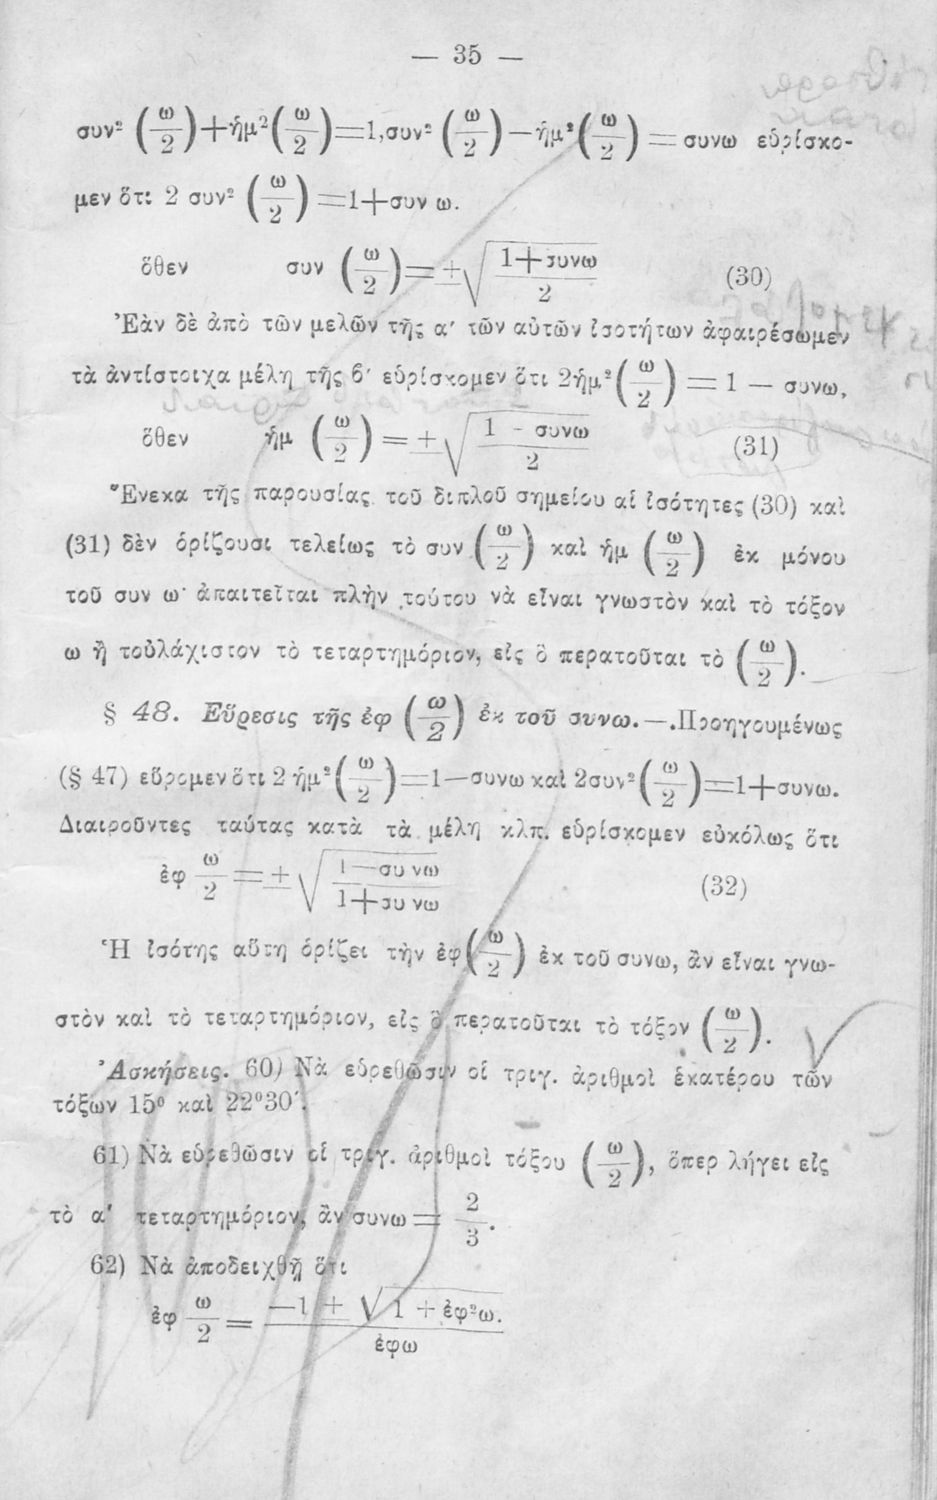 — 35 —
συν² (ω/2)+ἡμ²(ω/2)=1,συν² (ω/2)—ἡμ²(ω/2) = συνω εὑρίσκο-
μεν ὅτι 2 συν² (ω/2)=1+συν ω.
ὅθεν συν (ω/2)=±√(1+συνω/2) (30)
Ἐὰν δὲ ἀπὸ τῶν μελῶν τῆς α′ τῶν αὐτῶν ἰσοτήτων ἀφαιρέσωμεν
τὰ ἀντίστοιχα μέλη τῆς β′ εὑρίσκομεν ὅτι 2ἡμ²(ω/2) = 1 — συνω,
ὅθεν ἡμ (ω/2) = ±√(1 - συνω/2) (31)
Ἕνεκα τῆς παρουσίας τοῦ διπλοῦ σημείου αἱ ἰσότητες (30) καὶ
(31) δὲν ὁρίζουσι τελείως τὸ συν (ω/2) καὶ ἡμ (ω/2) ἐκ μόνου
τοῦ συν ω· ἀπαιτεῖται πλὴν τούτου νὰ εἶναι γνωστὸν καὶ τὸ τόξον
ω ἢ τοὐλάχιστον τὸ τεταρτημόριον, εἰς ὃ περατοῦται τὸ (ω/2).
§ 48. Εὕρεσις τῆς ἐφ (ω/2) ἐκ τοῦ συνω.—.Προηγουμένως
(§ 47) εὕρομεν ὅτι 2 ἡμ²(ω/2)=1—συνω καὶ 2συν²(ω/2)=1+συνω.
Διαιροῦντες ταύτας κατὰ τὰ μέλη κλπ. εὑρίσκομεν εὐκόλως ὅτι
ἐφ ω/2 = ± √(1—συνω/1+συνω) (32)
Ἡ ἰσότης αὕτη ὁρίζει τὴν ἐφ(ω/2) ἐκ τοῦ συνω, ἂν εἶναι γνω-
στὸν καὶ τὸ τεταρτημόριον, εἰς ὃ περατοῦται τὸ τόξον (ω/2).
Ἀσκήσεις. 60) Νὰ εὑρεθῶσιν οἱ τριγ. ἀριθμοὶ ἑκατέρου τῶν
τόξων 15⁰ καὶ 22⁰30′.
61) Νὰ εὑρεθῶσιν οἱ τριγ. ἀριθμοὶ τόξου (ω/2), ὅπερ λήγει εἰς
τὸ α′ τεταρτημόριον, ἂν συνω = 2/3.
62) Νὰ ἀποδειχθῇ ὅτι
ἐφ ω/2 = —1 ± √1 + ἐφ²ω. / ἐφω